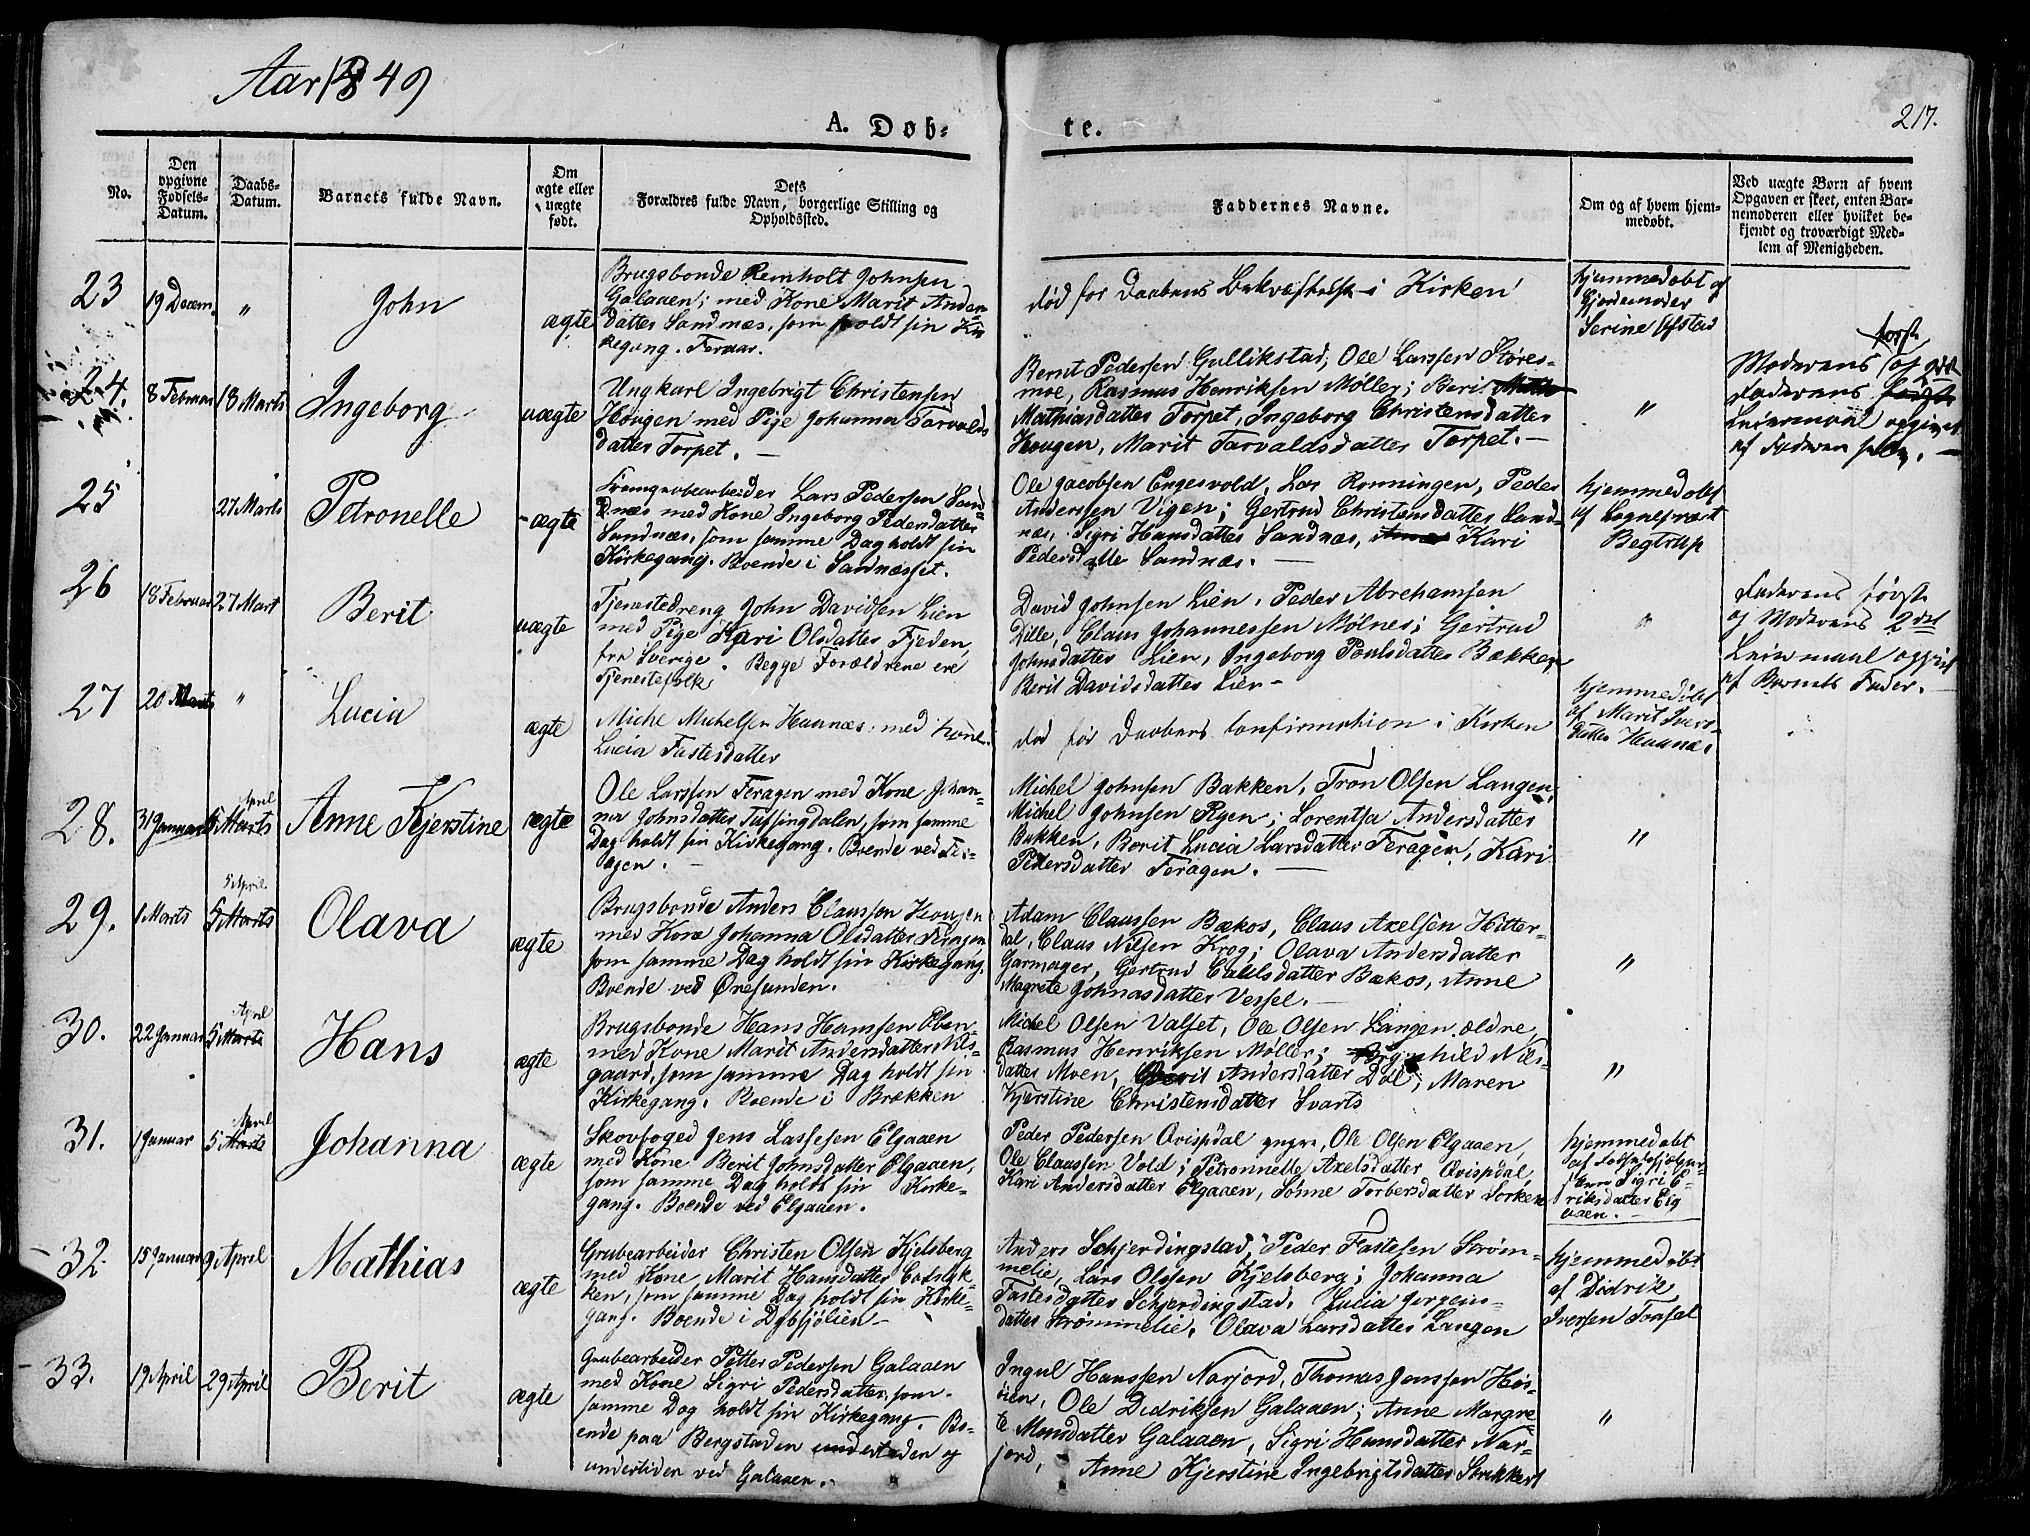 Aar 1849
217.
A. Døb-
te.
No.
Den
opgivne
Fødsels-
Datum.
Daabs-
Datum.
Barnets fulde Navn.
Om
ægte eller
uægte
født.
Dets
Forældres fulde Navn, borgerlige Stilling og
Opholdssted.
Faddernes Navne.
Om og af hvem hjem-
medøbt.
Ved uægte Børn af hvem
Opgaven er skeet, enten Bar-
nemoderen eller hvilket be-
kjendt og troværdigt Med-
lem af Menigheden.
23
19 Decem.
"
John
ægte
Brugsbonde Reinholt Johnsen
Galaaen; med Kone Marit Anders-
datter Sandnæs, som holdt sin Kir-
kegang. Feruar.
død før Daabens Bekræftelse i Kirken
hjemmedøbt af
Gjordemoder
Serine Ofstad
24.
8 Februar
18 Marts
Ingeborg
uægte
Ungkarl Ingebrigt Christensen
Hougen med Pige Johanna Tarvalds
datter Torpet. —
Bernt Pedersen Gullikstad, Ole Larssen Støres-
moe, Rasmus Henriksen Møller; Berit
Mathiasdatter Torpet, Ingeborg Christensdatter
Hougen, Marit Tarvaldsdatter Torpet. —
"
første
Moderens og 2det
Faderens
Leiermaal opgivet
af Faderen selv. —
25
27 Marts
Petronelle
ægte
Lars Pedersen Sand-
næs med Kone Ingeborg Pedersdatter
Sandnæs, som samme Dag holdt sin
Kirkegang. Boende i Sandnæsset.
Ole Jacobsen Engesvold, Lars Rønningen, Peder
Anderssen Vigen; Gertrud Christensdatter Sand-
næs, Sigri Hansdatter Sandnæs, Kari
Pedersdatte Sandnæs. —
hjemmedøbt
af Sognepræst
Begtrup
26
18 Februar
27 Mart
Berit
uægte
Tjenestedreng John Davidsen Lien
med Pige Kari Olsdatter Fjeden,
fra Sverige. Begge Forældrene ere
Tjenestefolk
David Johnsen Lien, Peder Abrehamsen
Dille, Claus Johannessen Mølnes; Gertrud
Johnsdatter Lien, Ingeborg Poulsdatter Bækken,
Berit Davidsdatter Lien -
"
Faderens første
og Moderens 2det
Leiermaal opgivet
af Barnets Fader. —
27
20 Marts
"
Lucia
ægte
Michel Michelsen Haanæs, med Kone
Lucia Fastesdatter
død før Daabens Confirmation i Kirken
hjemmedøbt
af Marit Ivers-
datter Haanæs
28.
31 Januar
April
5 Marts
Anne Kjerstine
ægte
Ole Larssen Feragen med Kone Johan-
na Johnsdatter Tufsingdalen, som samme
Dag holdt sin Kirkegang. Boende ved Fer-
agen. —
Michel Johnsen Bakken, Tron Olsen Langen,
Michel Johnsen Ryen; Lorentsa Andersdatter
Bakken, Berit Lucia Larsdatter Feragen, Kari
Pedersdatter Feragen. —
"
29.
1 Marts
5 April
5 Marts
Olava
ægte
Brugsbonde Anders Claussen Hougen
med Kone Johanna Olsdatter Feragen
som samme Dag holdt sin Kirkegang.
Boende ved Øresunden.
Adam Claussen Bækos, Claus Axelsen Hitter-
dal, Claus Nilsen Krog; Olava Andersdatter
Garmager, Gertrud Eskilsdatter Bækos, Anne
Magrete Johnasdatter Vessel. —
"
30.
22 Januar
April
5 Marts
Hans
ægte
Brugsbonde Hans Hanssen Eben-
med Kone Marit Andersdatter Nils-
gaard, som samme Dag holdt sin
Kirkegang. Boende i Brækken
Michel Olsen Valset, Ole Olsen Langen ældre,
Rasmus Henriksen Møller; Børgenhild Nils-
datter Moen, Berit Andersdatter Døl, Maren
Kjerstine Christensdatter Svarts
"
31.
1 Januar
April
5 Marts
Johanna
ægte
Skovfoged Jens Lassesen Elgaaen
med Kone Berit Johnsdatter Elgaaen,
som samme Dag holdt sin Kirke-
gang. Boende ved Elgaaen.
Peder Pedersen Qvispdal yngre, Ole Olsen Elgaaen,
Ole Claussen Vold; Petronnelle Axelsdatter Qvispdal,
Kari Andersdatter Elgaaen, Sønne Torbersdatter Sørken
hjemmedøbt
af
Sigri E-
riksdatter Elg
aaen. —
32.
15 Januar
9 April
Mathias
ægte
Grubearbeider Christen Olsen Kjelsberg
med Kone Marit Hansdatter
ken, som samme Dag holdt sin Kirke-
gang. Boende i Dybsjølien -
Anders Schjerdingstad, Peder Fastesen Strøm-
melie, Lars Olssen Kjelsberg; Johanna
Fastesdatter Schjerdingstad, Lucia Jørgens-
datter Strømmelie, Olava Larsdatter Langen
hjemmedøbt
af Didrik
Iversen Tonsal
33.
19 April
29 April
Berit
ægte
Grubearbeider Petter Pedersen Galaaen
med Kone Sigri Pedersdatter, som
samme Dag holdt sin Kirkegang. Bo-
ende paa Bergstaden og
undertiden ved Galaaen.
Ingul Hanssen Narjord, Thomas Jenssen Høs-
øien, Ole Didriksen Galaaen; Anne Margre-
te Monsdatter Galaaen, Sigri Hansdatter Nar-
jord, Anne Kjerstine Ingebrigtsdatter Strikkert
"